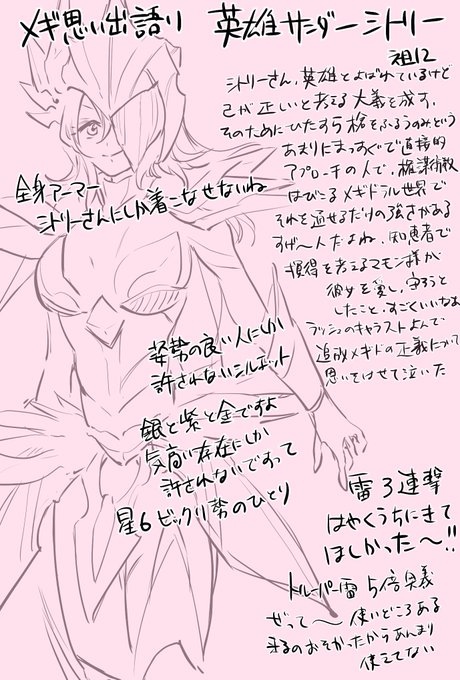 メギ思い出語り 英雄サンダーシトリー
祖12
シトリーさん、英雄とよばれているけど
己が正しいと考える大義を成す、
そのためにひたすら槍をふるうのみという
あまりにまっすぐで直接的
アプローチの人で、権謀術数
はびこるメギドラル世界で
それを通せるだけの強さがある
すげ〜人だよね、知恵者で
損得を考えるマモン様が
彼女を愛し、守ろうと
したこと、すごくいいなぁ
プッシュのキャラストよんで
追放メギドの正義について
思いをはせて泣いた
全身アーマー
シトリーさんにしか着こなせないね
姿勢の良い人にしか
許されないシルエット
銀と紫と金ですよ
気高い存在にしか
許されないですって
星6ビックリ勢のひとり
雷3連撃
はやくうちにきて
ほしかった〜!!
トルーパー雷5倍奥義
ぜって〜使いどころある
来るのおそかったからあんまり
使えてない